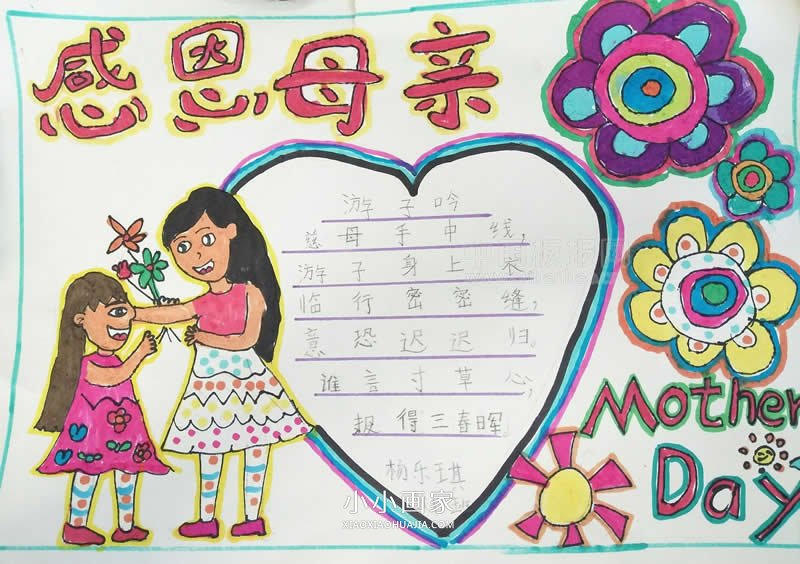 感恩母亲
游子吟
慈母手中线,
游子身上衣
临行密密缝,
意恐迟迟归。
谁言寸草心,
报得三春晖。
杨乐琪
Mother
Day
小小画家
XIAOXIAOHUAJIA.COM